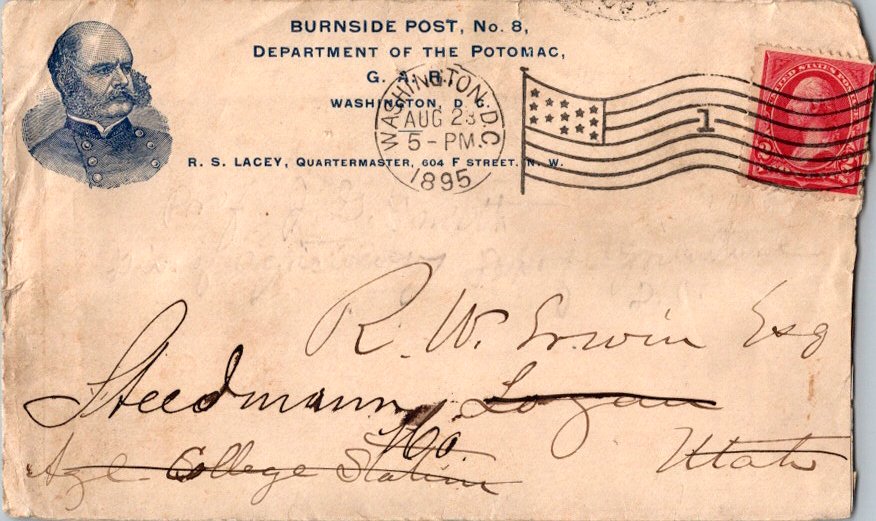 BURNSIDE POST, No. 8,
DEPARTMENT OF THE POTOMAC,
G. A. R.
WASHINGTON, D. C.
R. S. LACEY, QUARTERMASTER, 604 F STREET, N. W.
WASHINGTON, D.C.
AUG 23
5-PM
1895
1
UNITED STATES POSTAGE
R. W. Erwin Esq
Steedmann, Logan
Mo. Utah
Agl College Station